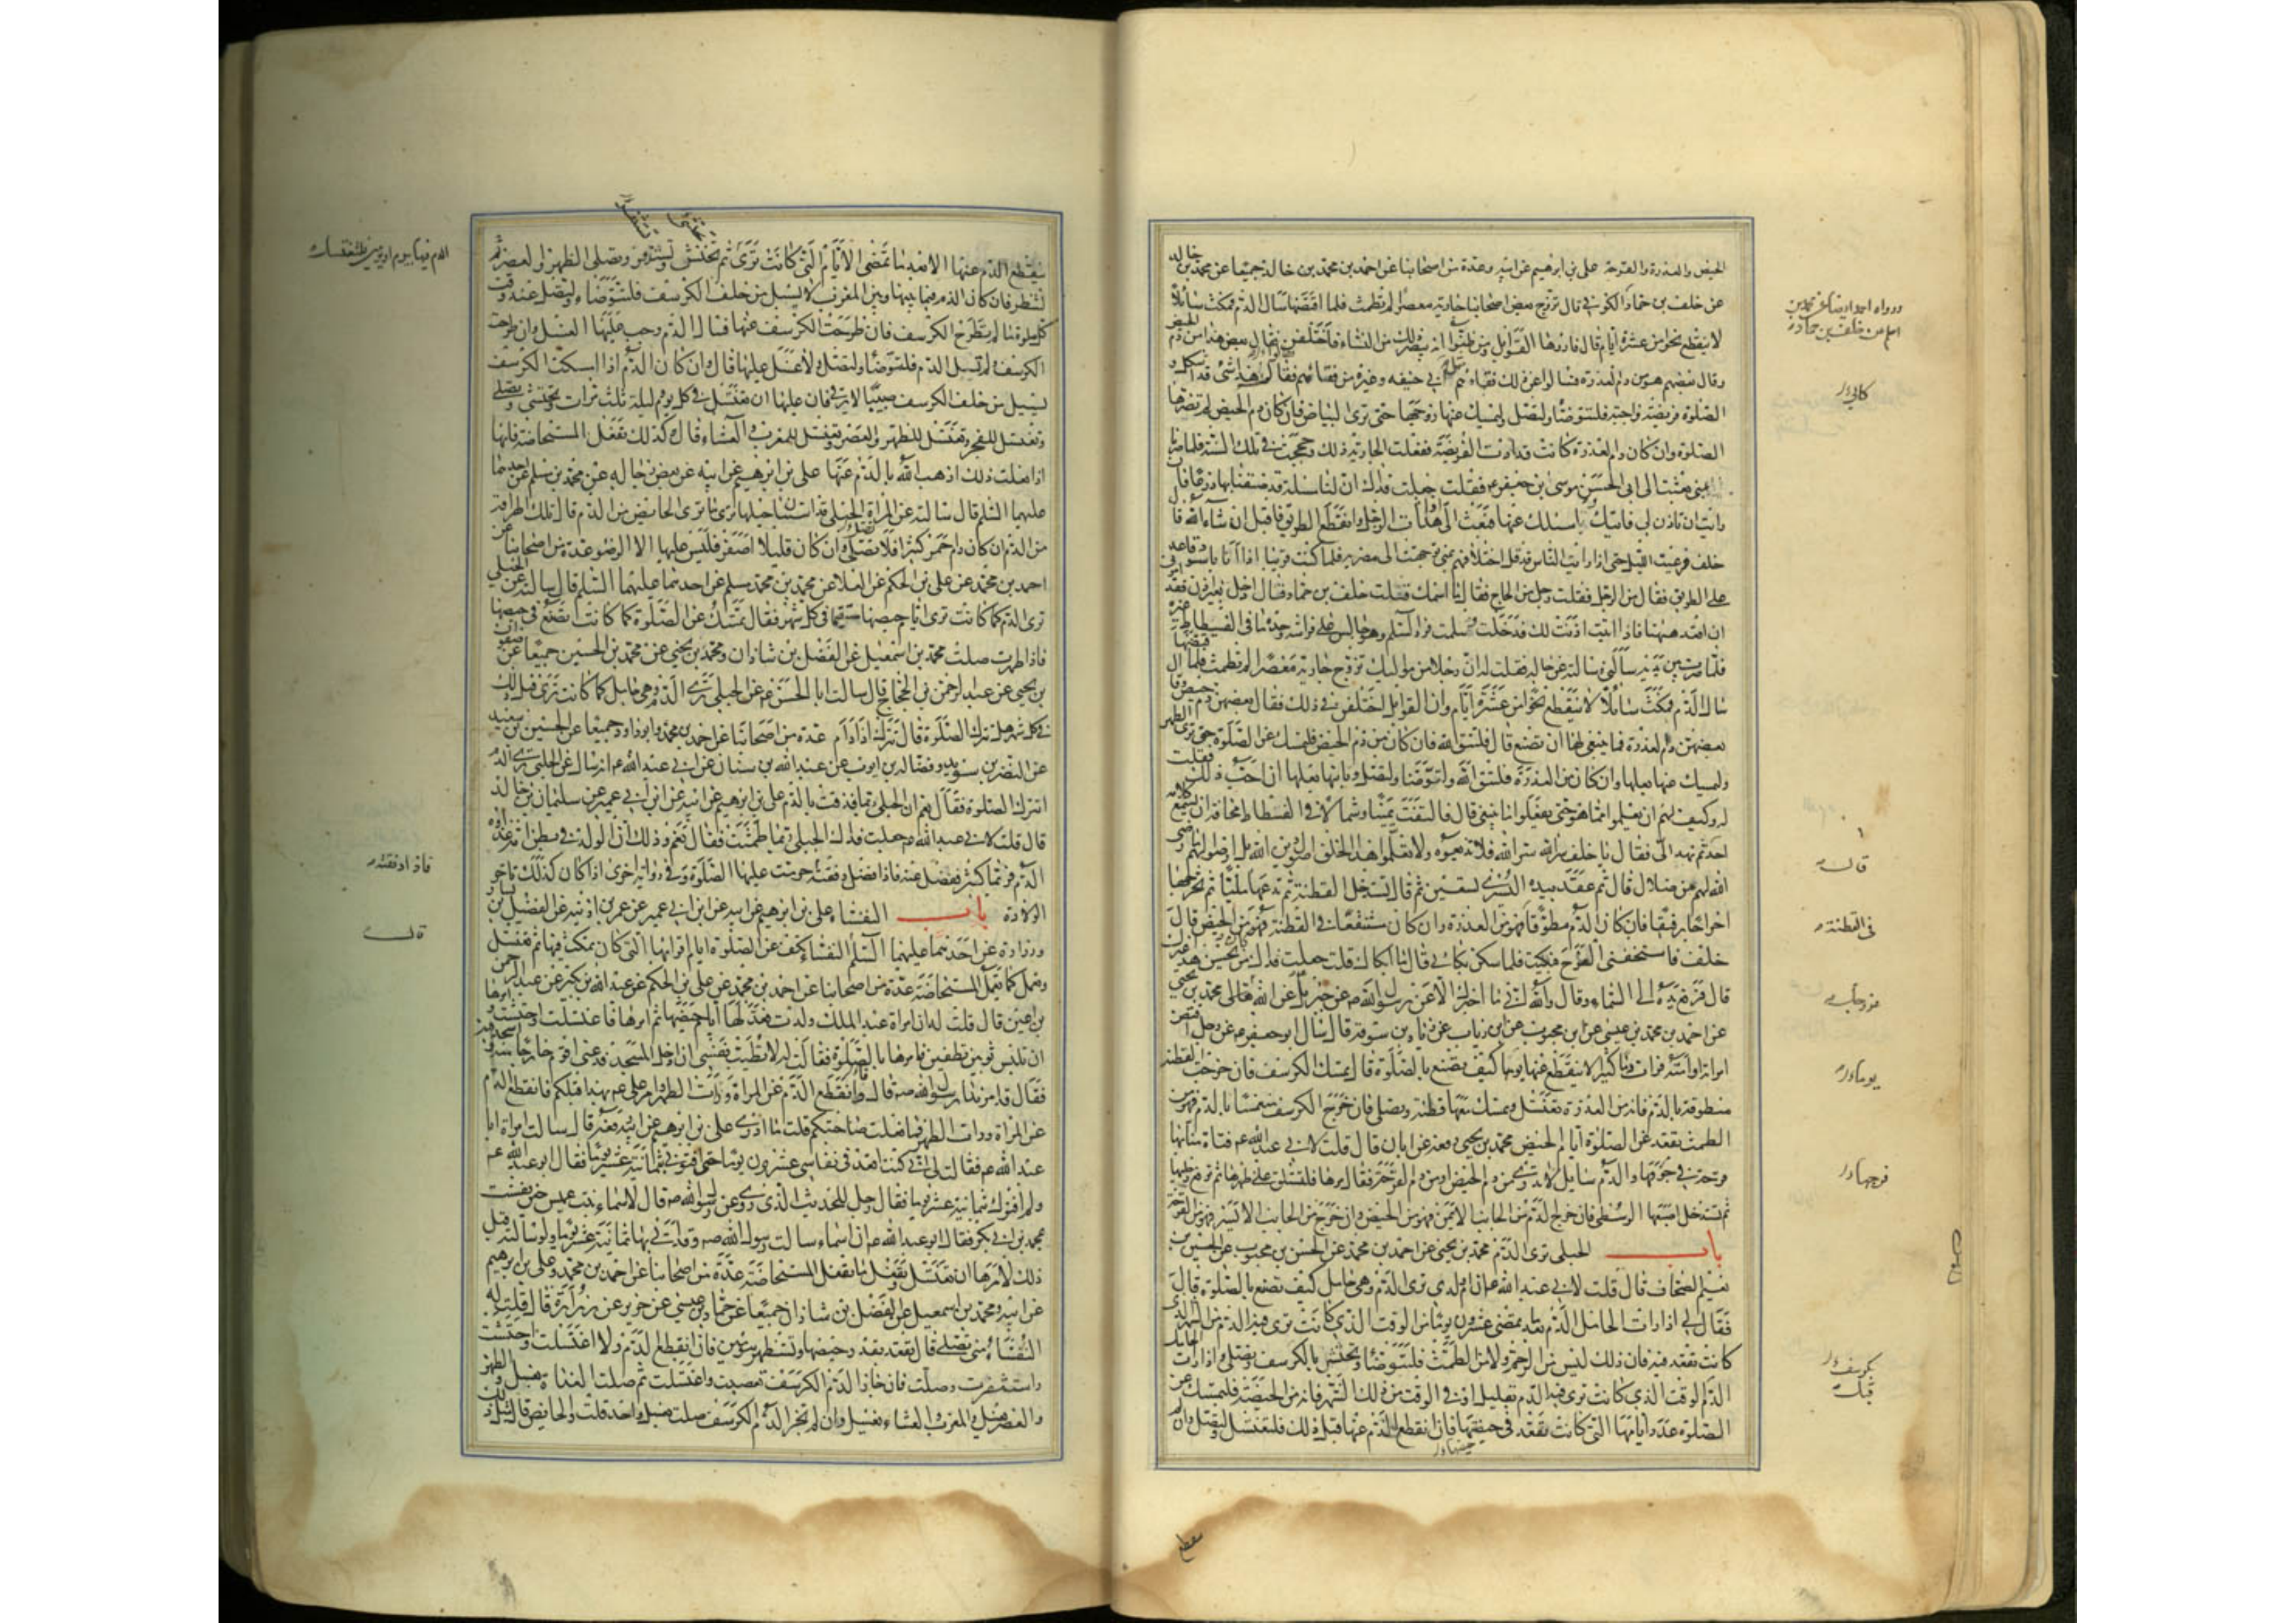 الحيض والعذرة والقرحة علي بن ابرهيم عن ابيه وعدة من اصحابنا عن احمد بن محمد بن خالد جميعا عن محمد بن خالد
عن خلف بن حماد الكوفي قال تزوج بعض اصحابنا جارية معصرا لم تطمث فلما اقتضها سال الدم فمكث سائلا
لا ينقطع نحوا من عشرة ايام قال فاروها القوابل ومن ظنوا انه يبصر ذلك من النساء فاختلفن فقال بعض هذا من دم الحيض
وقال بعضهم هو من دم العذرة فسالوا عن ذلك فقهاءهم ابي حنيفه وغيره من فقهائهم فقالوا هذا شئ قد اشكل و
الصلوة فريضة واجبة فلتتوضأ ولتصل وليمسك عنها زوجها حتى ترى البياض فان كان دم الحيض لم تضرها
الصلوة وان كان دم العذرة كانت قد ادت الفريضة ففعلت الجارية ذلك وحججت في تلك السنة فلما صرنا
بمنى بعثت الى ابي الحسن موسى بن جعفر ع فقلت جعلت فداك ان لنا مسئلة قد ضقنا بها ذرعا فان
رايت ان تاذن لي فاتيك فاسئلك عنها فبعث الي اذا هدأت الرجل وانقطع الطريق فاقبل ان شاء الله قا
خلف فرعيت الليل حتى اذا رايت الناس قد قل اختلافهم بمنى توجهت الى مضربه فلما كنت قريبا اذا انا باسود قاعد
على الطريق فقال من الرجل فقلت رجل من الحاج فقال ما اسمك فقلت خلف بن حماد فقال ادخل بغير اذن فقد
امرني ان اقعد ههنا فاذا اتيت اذنت لك فدخلت فسلمت فرد السلم وهو جالس على فراشه وحده ما في الفسطاط غيره
فلما صرت بين يديه سالني وسالته عن حاله فقلت له ان رجلا من مواليك تزوج جارية معصرا لم تطمث فلما اقتضها
سال الدم فمكث سائلا لا ينقطع نحوا من عشرة ايام وان القوابل اختلفن في ذلك فقال بعضهن دم الحيض وقال
بعضهن دم العذرة فما ينبغي لها ان تصنع قال فلتتق الله فان كان من دم الحيض فلتمسك عن الصلوة حتى ترى الطهر
وليمسك عنها بعلها وان كان من العذرة فلتتق الله ولتتوضأ ولتصل وياتيها بعلها ان احب ذلك فقلت
له وكيف لهم ان يعلموا مما هو حتى يفعلوا ما ينبغي قال فالتفت يمينا وشمالا في الفسطاط مخافة ان يسمع كلامه
احد ثم نهد الي فقال يا خلف سر الله سر الله فلا تذيعوه ولا تعلموا هذا الخلق اصول دين الله بل ارضوا لهم ما رضي
الله لهم من ضلال قال ثم عقد بيده اليسرى تسعين ثم قال تستدخل القطنة ثم تدعها مليا ثم تخرجها
اخراجا رفيقا فان كان الدم مطوقا فهو من العذرة وان كان مستنقعا في القطنة فهو من الحيض قال
خلف فاستخفني الفرح فبكيت فلما سكن بكائي قال ما ابكاك قلت جعلت فداك من كان يحسن هذا غيرك
قال فرفع يده الى السماء وقال والله اني ما اخبرك الا عن رسول الله ص عن جبرئل عن الله تعالى محمد بن يحيى
عن احمد بن محمد بن عيسى عن ابن محبوب عن ابن رئاب عن زياد بن سوقه قال سئل ابو جعفر ع عن رجل افتض
امراته او امته فرات دما كثيرا لا ينقطع عنها يوما كيف تصنع بالصلوة قال تمسك الكرسف فان خرجت القطنة
مطوقة بالدم فانه من العذرة تغتسل وتمسك معها قطنة وتصلي فان خرج الكرسف منغمسا بالدم فهو من
الطمث تقعد عن الصلوة ايام الحيض محمد بن يحيى رفعه عن ابان قال قلت لابي عبد الله ع فتاة منا بها
قرحة في جوفها والدم سايل لا تدري من دم الحيض او من دم القرحة فقال مرها فلتستلق على ظهرها ثم ترفع رجليها
ثم تستدخل اصبعها الوسطى فان خرج الدم من الجانب الايمن فهو من الحيض وان خرج من الجانب الايسر فهو من القرحة
باب الحبلى ترى الدم محمد بن يحيى عن احمد بن محمد عن الحسن بن محبوب عن الحسين بن
نعيم الصحاف قال قلت لابي عبد الله ع ان ام ولدي ترى الدم وهي حامل كيف تصنع بالصلوة قال
فقال لي اذا رات الحامل الدم بعد ما يمضي عشرون يوما من الوقت الذي كانت ترى فيه الدم من الشهر الذي
كانت تقعد فيه فان ذلك ليس من الرحم ولا من الطمث فلتتوضأ وتحتشي بالكرسف وتصلي واذا رات الحامل
الدم الوقت الذي كانت ترى فيه الدم بقليل او في الوقت من ذلك الشهر فانه من الحيضة فلتمسك عن
الصلوة عدد ايامها التي كانت تقعد في حيضها فان انقطع الدم عنها قبل ذلك فلتغتسل ولتصل وان لم
حيضها
ورواه احمد ايضا عن محمد بن
اسلم عن خلف بن حماد
قال
في القطنة
يوما
فرجها
بكرسف
قبل
ينقطع الدم عنها الا بعد ما تمضي الايام التي كانت ترى ثم تحتشي وتستذفر وتصلي الظهر والعصر ثم
لتنظر فان كان الدم فيما بينها وبين المغرب لا يسيل من خلف الكرسف فلتتوضأ ولتصل عند وقت
كل صلوة ما لم تطرح الكرسف فان طرحت الكرسف عنها فسال الدم وجب عليها الغسل وان طرحت
الكرسف ولم يسيل الدم فلتتوضأ ولتصل ولا غسل عليها قال وان كان الدم اذا امسكت الكرسف
يسيل من خلف الكرسف صبيبا لا يرقى فان عليها ان تغتسل في كل يوم وليلة ثلث مرات وتحتشي وتصلي
وتغتسل للفجر وتغتسل للظهر والعصر وتغتسل للمغرب والعشاء قال كذلك تفعل المستحاضة فانها
اذا فعلت ذلك اذهب الله بالدم عنها علي بن ابرهيم عن ابيه عن بعض رجاله عن محمد بن مسلم عن احدهما
عليهما السلم قال سالته عن المراة الحبلى قد استبان حبلها ترى ما ترى الحائض من الدم قال تلك الهراقة
من الدم ان كان دم احمر كثيرا فلا تصلي وان كان قليلا اصفر فليس عليها الا الوضوء عدة من اصحابنا عن
احمد بن محمد عن علي بن الحكم عن العلا عن محمد بن مسلم عن احدهما عليهما السلم قال سالته عن الحبلى
ترى الدم كما كانت ترى ايام حيضها مستقيما في كل شهر فقال تمسك عن الصلوة كما كانت تصنع في حيضها
فاذا طهرت صلت محمد بن اسمعيل عن الفضل بن شاذان ومحمد بن يحيى عن محمد بن الحسين جميعا عن صفوان
بن يحيى عن عبد الرحمن بن الحجاج قال سالت ابا الحسن ع عن الحبلى ترى الدم وهي حامل كما كانت ترى قبل ذلك
في كل شهر هل تترك الصلوة قال تترك اذا دام عدة من اصحابنا عن احمد بن محمد وابو داود جميعا عن الحسين بن سعيد
عن النضر بن سويد وفضالة بن ايوب عن عبد الله بن سنان عن ابي عبد الله ع انه سال عن الحبلى ترى الدم
اتترك الصلوة فقال نعم ان الحبلى ربما قذفت بالدم علي بن ابرهيم عن ابيه عن ابن ابي عمير عن سليمان بن خالد
قال قلت لابي عبد الله ع جعلت فداك الحبلى ربما طمثت فقال نعم وذلك ان الولد في بطن امه غذاؤه
الدم فربما كثر ففضل عنه فاذا فضل دفقته حرمت عليها الصلوة وفي رواية اخرى اذا كان كذلك تاخر
الولادة باب النفساء علي بن ابرهيم عن ابيه عن ابن ابي عمير عن عمر بن اذينه عن الفضيل بن يسار و
وزرارة عن احدهما عليهما السلم النفساء تكف عن الصلوة ايام اقرائها التي كان تمكث فيها ثم تغتسل
وتعمل كما تعمل المستحاضة عدة من اصحابنا عن احمد بن محمد عن علي بن الحكم عن عبد الله بن بكير عن عبد الرحمن
بن اعين قال قلت له ان امراة عبد الملك ولدت فعد لها ايام حيضها ثم امرها فاغتسلت واحتشت وامرها
ان تلبس ثوبين نظيفين وامرها بالصلوة فقالت له لا تطيب نفسي ان ادخل المسجد فدعني اقوم خارجا منه واسجد فيه
فقال قد امر بذا رسول الله ص قال فانقطع الدم عن المراة ورات الطهر وامر علي ع بهذا قبلكم فانقطع الدم
عن المراة ورات الطهر فما فعلت صاحبتكم قلت ما ادري علي بن ابرهيم عن ابيه رفعه قال سالت امراة ابا
عبد الله ع فقالت اني كنت اقعد في نفاسي عشرون يوما حتى افتوني بثمانية عشر يوما فقال ابو عبد الله ع
ولم افتوك بثمانية عشر يوما فقال رجل للحديث الذي روي عن رسول الله ص قال لاسماء بنت عميس حين نفست
بمحمد بن ابي بكر فقال ابو عبد الله ع ان اسماء سالت رسول الله ص وقد اتى بها ثمانية عشر يوما ولو سالته قبل
ذلك لامرها ان تغتسل وتفعل ما تفعل المستحاضة عدة من اصحابنا عن احمد بن محمد وعلي بن ابرهيم
عن ابيه ومحمد بن اسمعيل عن الفضل بن شاذان جميعا عن حماد بن عيسى عن حريز عن زرارة قال قلت له
النفساء متى تصلي قال تقعد بقدر حيضها وتستظهر بيومين فان انقطع الدم والا اغتسلت واحتشت
واستثفرت وصلت فان جاز الدم الكرسف تعصبت واغتسلت ثم صلت الغداة بغسل والظهر
والعصر بغسل والمغرب والعشاء بغسل وان لم تجز الدم الكرسف صلت بغسل واحد قلت والحايض قال مثل ذلك
الدم فيها بيوم او يومين فلتغتسل
فاذا دفقته
قال